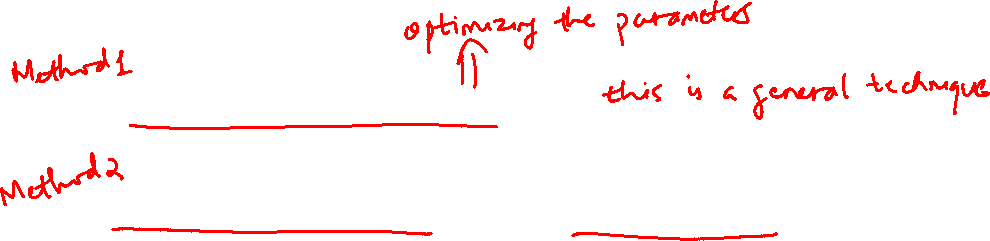 optimizing the parameters
Method1
this is a general technique
Method2